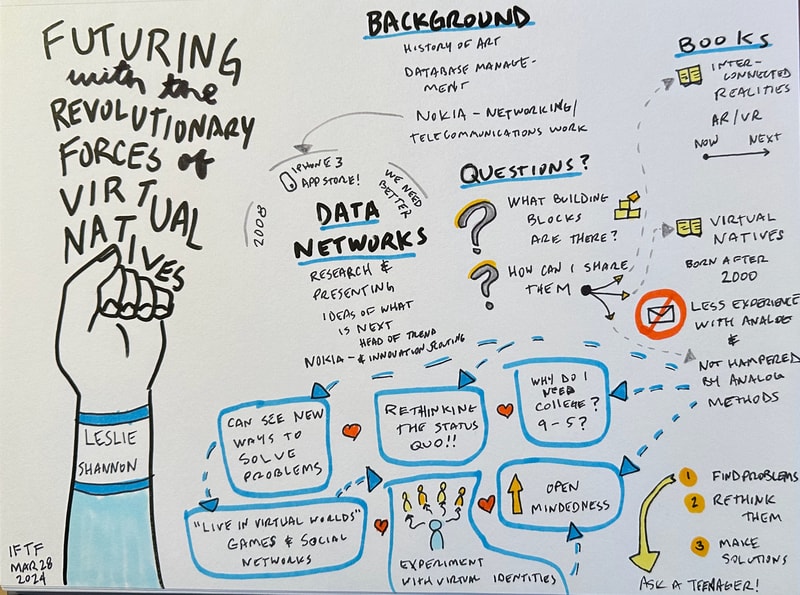 FUTURING
with the
REVOLUTIONARY
FORCES of
VIRTUAL
NATIVES
LESLIE
SHANNON
IFTF
MAR 28
2024
BACKGROUND
HISTORY OF ART
DATABASE MANAGE-
MENT
NOKIA - NETWORKING/
TELECOMMUNICATIONS WORK
2008
IPHONE 3
APP STORE!
WE NEED
BETTER
DATA
NETWORKS
RESEARCH &
PRESENTING
IDEAS OF WHAT
IS NEXT
HEAD OF TREND
NOKIA - & INNOVATION SCOUTING
QUESTIONS?
?
WHAT BUILDING
BLOCKS
ARE THERE?
?
HOW CAN I SHARE
THEM
BOOKS
INTER-
CONNECTED
REALITIES
AR/VR
NOW NEXT
VIRTUAL
NATIVES
BORN AFTER
2000
LESS EXPERIENCE
WITH ANALOG
&
NOT HAMPERED
BY ANALOG
METHODS
CAN SEE NEW
WAYS TO
SOLVE
PROBLEMS
RETHINKING
THE STATUS
QUO!!
WHY DO I
NEED
COLLEGE?
9-5?
"LIVE IN VIRTUAL WORLDS"
GAMES & SOCIAL
NETWORKS
EXPERIMENT
WITH VIRTUAL IDENTITIES
OPEN
MINDEDNESS
1 FIND PROBLEMS
2 RETHINK
THEM
3 MAKE
SOLUTIONS
ASK A TEENAGER!